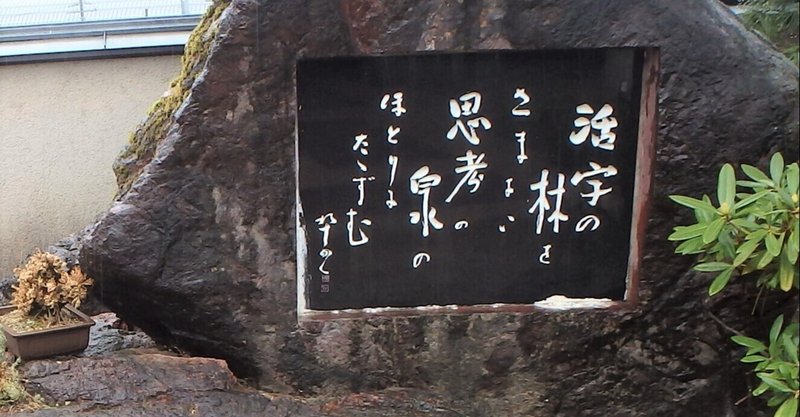 活字の
林を
さまよい
思考の
泉の
ほとりに
たゝずむ